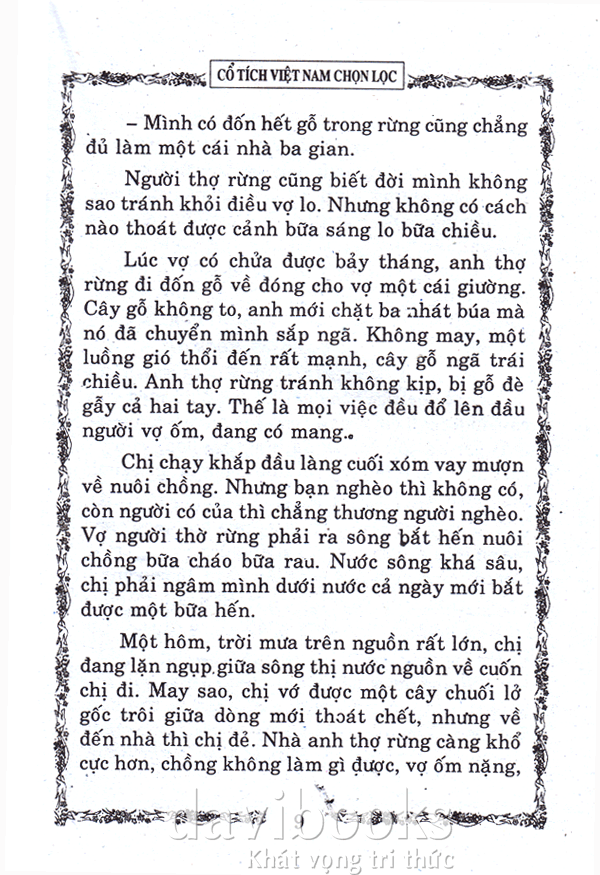 CỔ TÍCH VIỆT NAM CHỌN LỌC
– Mình có đốn hết gỗ trong rừng cũng chẳng
đủ làm một cái nhà ba gian.
Người thợ rừng cũng biết đời mình không
sao tránh khỏi điều vợ lo. Nhưng không có cách
nào thoát được cảnh bữa sáng lo bữa chiều.
Lúc vợ có chửa được bảy tháng, anh thợ
rừng đi đốn gỗ về đóng cho vợ một cái giường.
Cây gỗ không to, anh mới chặt ba nhát búa mà
nó đã chuyển mình sắp ngã. Không may, một
luồng gió thổi đến rất mạnh, cây gỗ ngã trái
chiều. Anh thợ rừng tránh không kịp, bị gỗ đè
gẫy cả hai tay. Thế là mọi việc đều đổ lên đầu
người vợ ốm, đang có mang.
Chị chạy khắp đầu làng cuối xóm vay mượn
về nuôi chồng. Nhưng bạn nghèo thì không có,
còn người có của thì chẳng thương người nghèo.
Vợ người thờ rừng phải ra sông bắt hến nuôi
chồng bữa cháo bữa rau. Nước sông khá sâu,
chị phải ngâm mình dưới nước cả ngày mới bắt
được một bữa hến.
Một hôm, trời mưa trên nguồn rất lớn, chị
đang lặn ngụp giữa sông thị nước nguồn về cuốn
chị đi. May sao, chị vớ được một cây chuối lở
gốc trôi giữa dòng mới thoát chết, nhưng về
đến nhà thì chị đẻ. Nhà anh thợ rừng càng khổ
cực hơn, chồng không làm gì được, vợ ốm nặng,
9
davibooks
Khát vọng tri thức